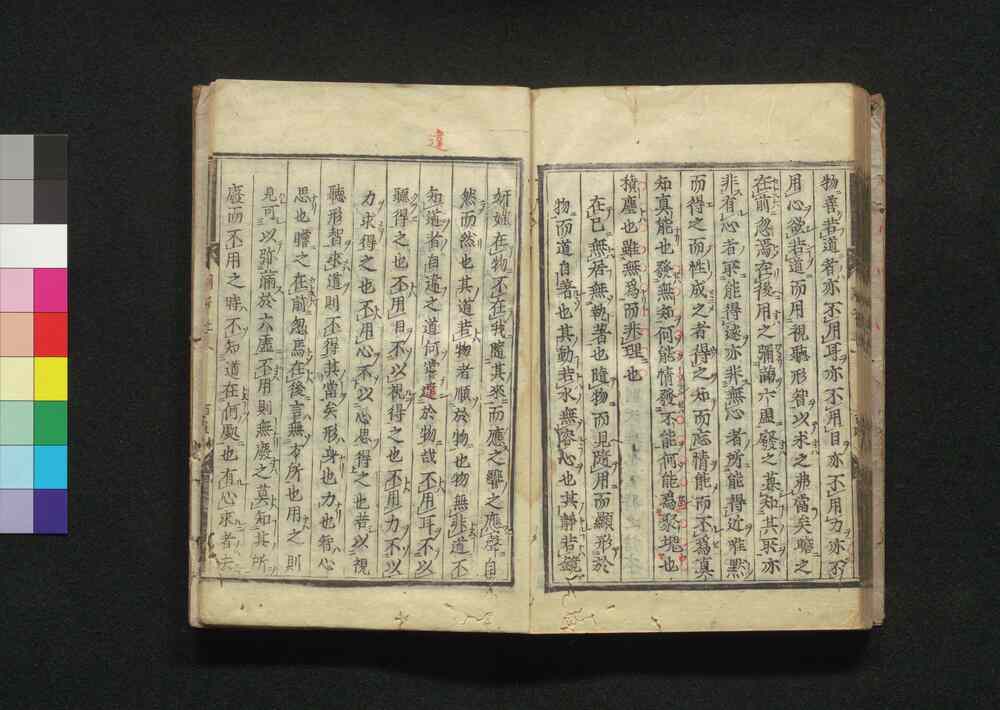 物善若道者亦不用耳亦不用目亦不用力亦不
用心欲若道而用視聽形智以求之弗當矣瞻之
在前忽焉在後用之彌滿六虛發之莫知其所亦
非有心者所能得遠亦非無心者所能得近唯默
而得之而性成之者得之知而忘情能而不爲真
知真能也發無知何能情發不能何能爲聚塊也
積塵也雖無爲而非理也
在己無居無執著也隨物而見隨用而顯形於
物而道自著也其動若水無容心也其靜若鏡
違
妍媸在物不在我隨其來而應之響之應聲自
然而然也其道若物者順於物也物無非道不
知道者自違之道何嘗違於物哉不用耳不以
聽得之也不用目不以視得之也不用力不以
力求得之也不用心不以心思得之也若以視
聽形智求道則不得其當矣形身也力也智心
思也瞻之在前忽焉在後言無方所也用之則
見可以弥滿於六虛不用則無廢之莫知其所
廢而不用之時不知道在何處也有心求者去